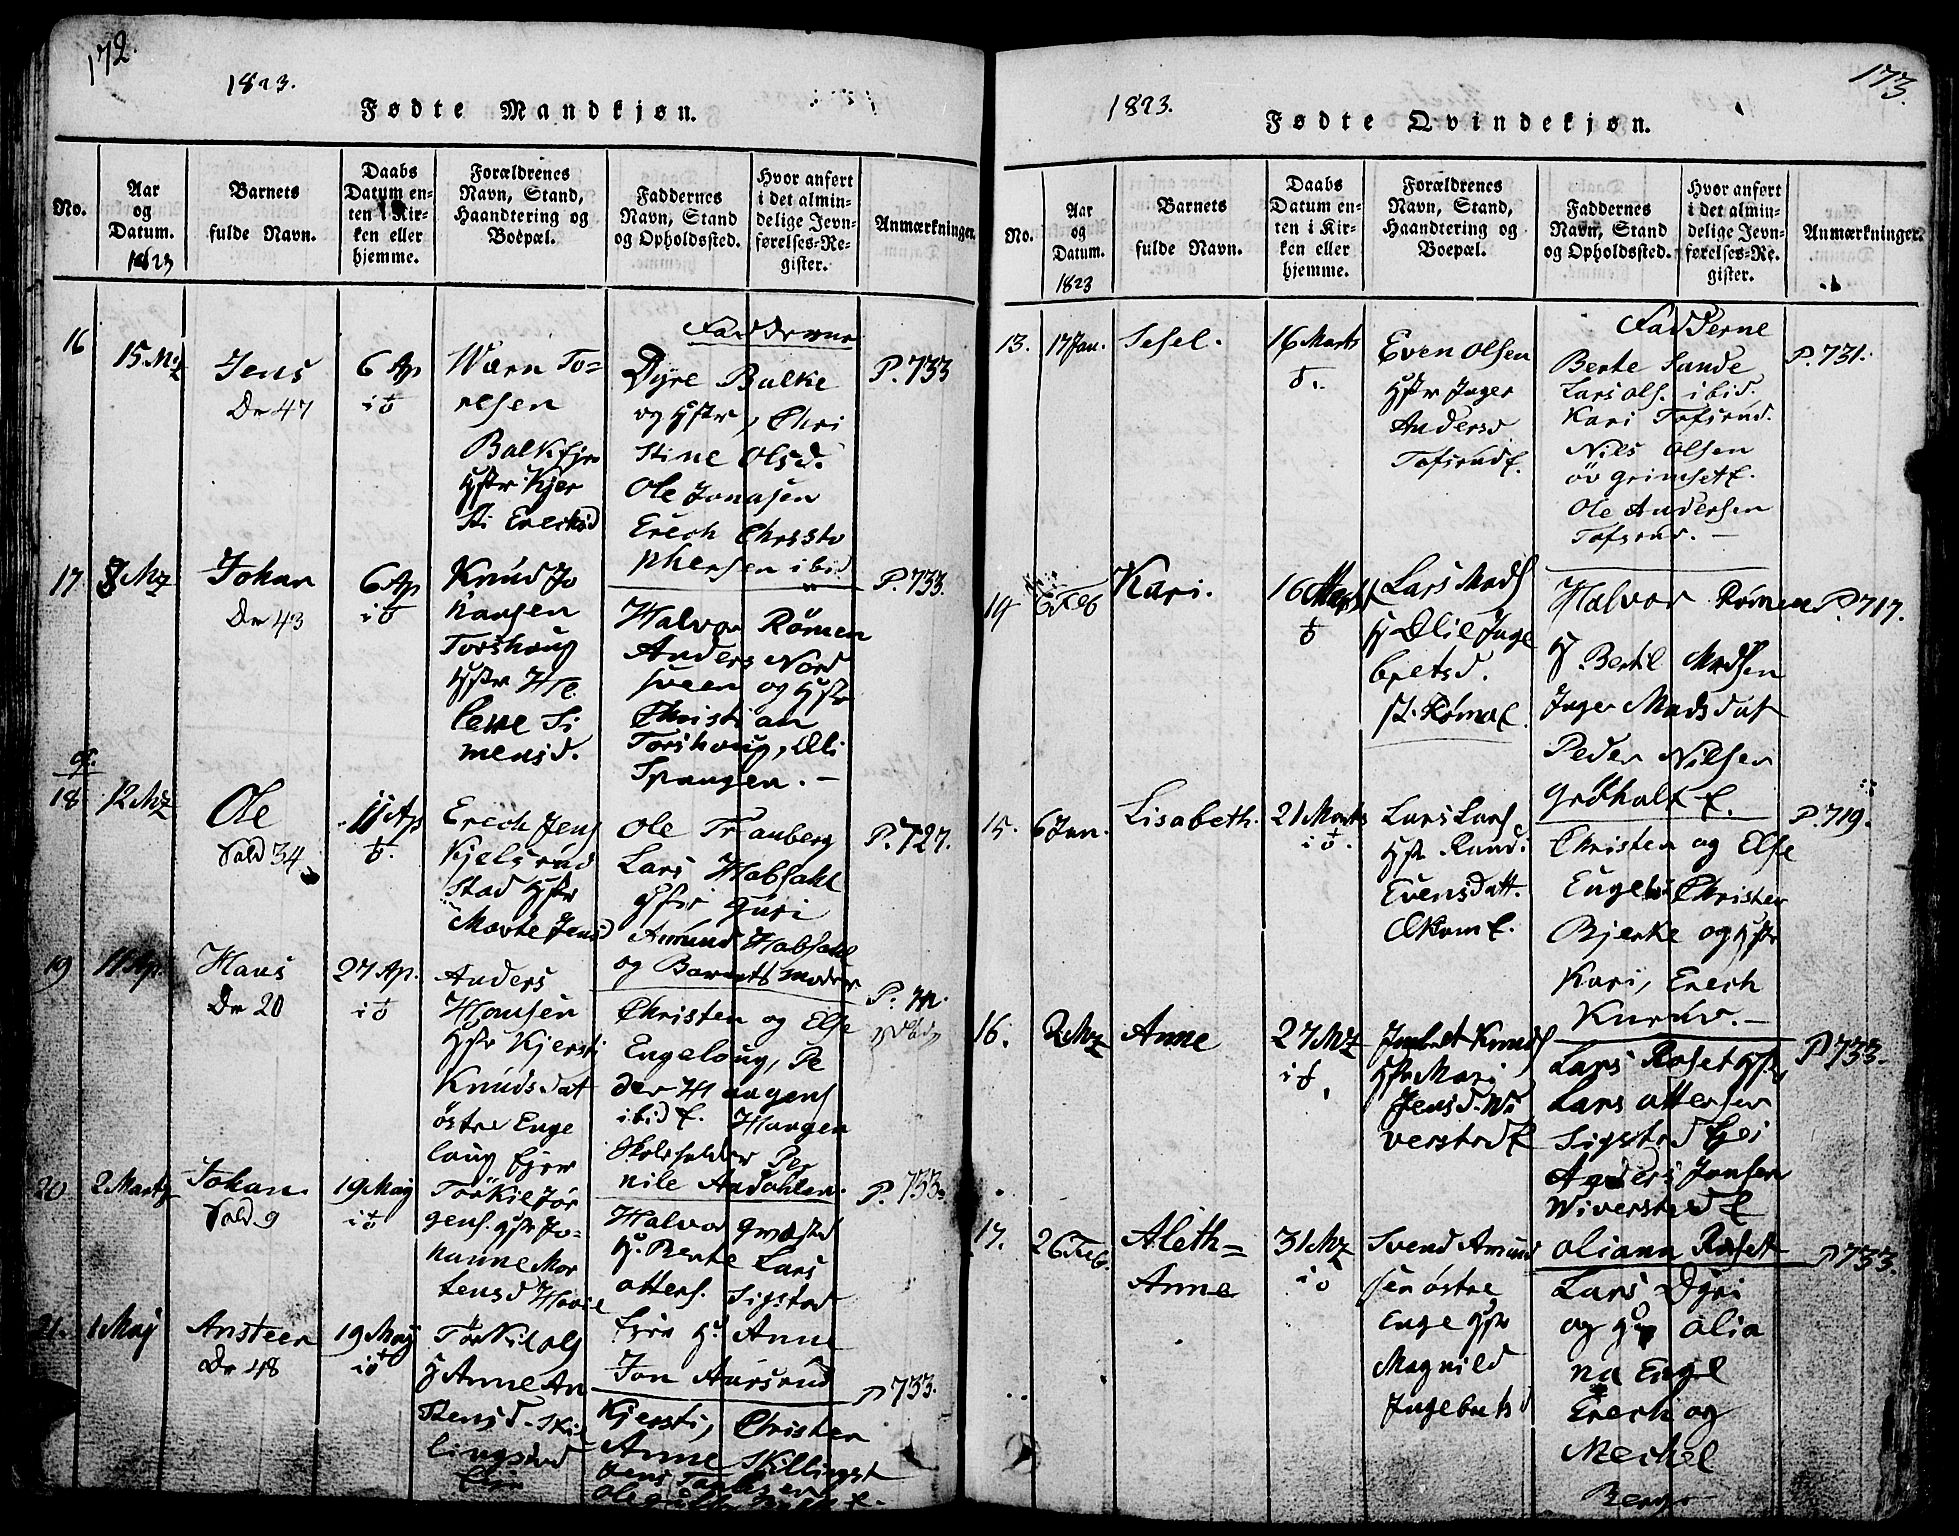 172.
1823.
Fødte Mandkjøn.
No.
Aar
og
Datum.
1823
Barnets
fulde Navn.
Daabs
Datum en-
ten i Kir-
ken eller
hjemme.
Forældrenes
Navn, Stand,
Haandtering og
Boepæl.
Faddernes
Navn, Stand
og Opholdssted.
Hvor anført
i det almin-
delige Jevn-
førelses-Re-
gister.
Anmærkninger.
16
15 Mz
Jens
Dr 47
6 Ap
i
Warn To=
resen
Balke
Hstr Kjer
sti Erecksd
Fadderne
Dyre Balke
og Hstr, Chri
stine Olsd.
Ole Jonasen
Erech Christo
phersen ibid
P. 733
17
8 Mz
Johan
Dr 43
6 Ap
i
Knud Jo
hansen
Torshaug
Hstr He
lene Si
mensd.
Halvor Römen
Anders Nord
sveen og Hstr
Christian
Torshoug, Oli
Spangen. –
P. 733.
18
12 Mz
Ole
Sold 34
11 Ap
Erech Jens
Kjelsrud
Stad Hstr
Marte Jensd
Ole Tranberg
Lars Habsahl
Guri
Amund Habsahl
og Barnets moder
P. 727.
19
11 Ap.
Hans
Dr 20
27 Ap.
i
Anders
Hansen
Hstr Kjersti
Knudsdat
östre Enge
loug Ejer
Christen og Else
Engeloug, Pe
der Haugens
ibid E. Haugen
Skoleholder Per
nile Andahlen.
20
2 Marty
Johan.
Sold 9
19 May
i
Törkil Jör
gens. Hstr Jo-
hanne Mor
tensd Hovie
Halvor Græsted
H. Berte Lars
otters. Sigstad
Ejer H. Anne
Jon Aursrud
P. 733.
21.
1 Maj
Ansteen
Dr 48
19 May
i
Törkil Ols
H Anne An
stensd. Skil
lingstad
Ejer
Kjersti, Christen
Anne Skillingst
P 733.
173.
1823.
Fødte Qvindekjøn.
No.
Aar
og
Datum.
1823
Barnets
fulde Navn.
Daabs
Datum en-
ten i Kir-
ken eller
hjemme.
Forældrenes
Navn, Stand,
Haandtering og
Boepæl.
Faddernes
Navn, Stand
og Opholdssted.
Hvor anført
i det almin-
delige Jevn-
førelses-Re-
gister.
Anmærkninger.
13.
17 Jan.
Sesel.
16 Marts
Even Olsen
Hstr Inger
Andersd
Tofsrud E.
Fadderne
Berte Sande
Lars Ols. ibid.
Kari Tofsrud.
Nils Olsen
öv Grimset E.
Ole Andersen
Tofsrud. –
P. 731.
14
6 Feb
Kari.
16 Marts
Lars Mads
H Olie Inge
bretsd.
St. Röma E.
Halvor Römen
H. Bertil Madsen
Inger Madsdat
Peder Nilsen
Gröholt E.
P. 717.
15.
6 Jan.
Lisabeth.
21 Marts
i
Lars Lars
Hstr Rund.
Evensdatt.
Økom E.
Christen og Else
Engel Christen
Bjerke og Hstr
Kari, Erech
Kurud. –
P. 719.
16.
2 Mz
Anne
27 Mz
i
Knuds
Hstr Mari
Jensd. Wi
verstad E
Lars Roset Hstr,
Lars ottersen
Sigstad Ejer
Anders Jonsen
Wiverstad E
oliana Roset
P 733.
17.
26 Feb.
Aleth=
Anne
31 Mz
i
Svend Amund
sen östre
Enge Hstr
Magnild
Ingebretsd
Lars Dyri
og H olia
na Engel
Erech og
Meckel
Berg
P 733.